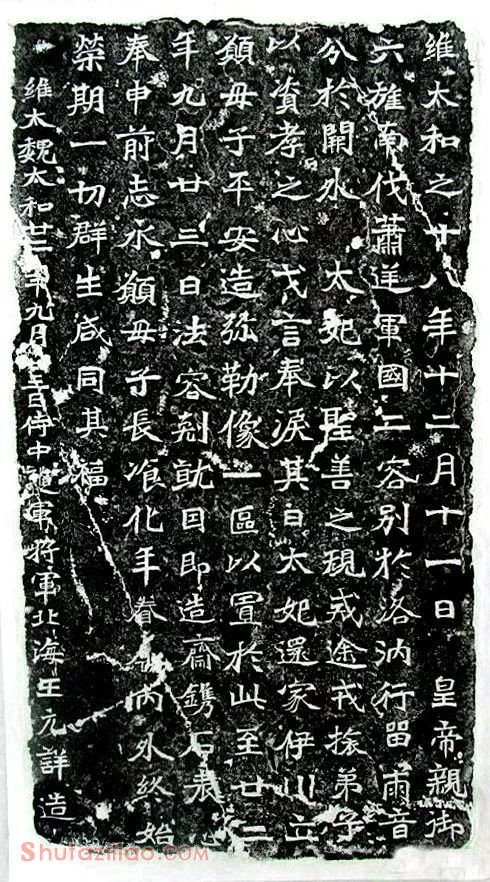 維太和之十八年十二月十一日皇帝親御
六旌南伐蕭逆軍國二容別於洛汭行留兩音
分於闕外太妃以聖善之規戒途戎旅弟子
以資孝之心戈言奉淚其日太妃還家伊川立
願母子平安造弥勒像一區以置於此至廿二
年九月廿三日法容剋就因即造齋鐫石表心
奉申前志永願母子長瘣化年眷屬內外終始
榮期一切群生咸同其福
維大魏太和廿二年九月廿三日侍中護軍將軍北海王元詳造
Shufaziliao.COM